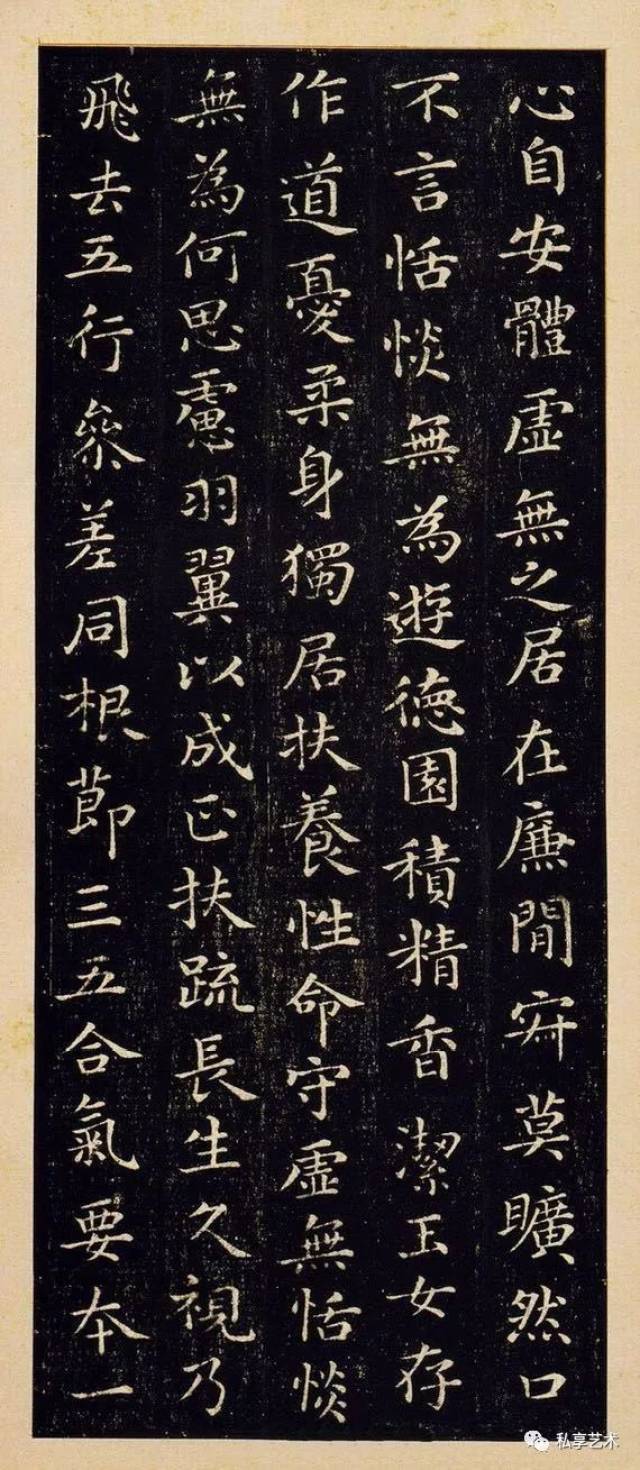 心自安體虛無之居在廉間寂莫曠然口
不言恬惔無為遊德園積精香潔玉女存
作道憂柔身獨居扶養性命守虛無恬惔
無為何思慮羽翼以成正扶疏長生久視乃
飛去五行參差同根節三五合氣要本一
私享艺术